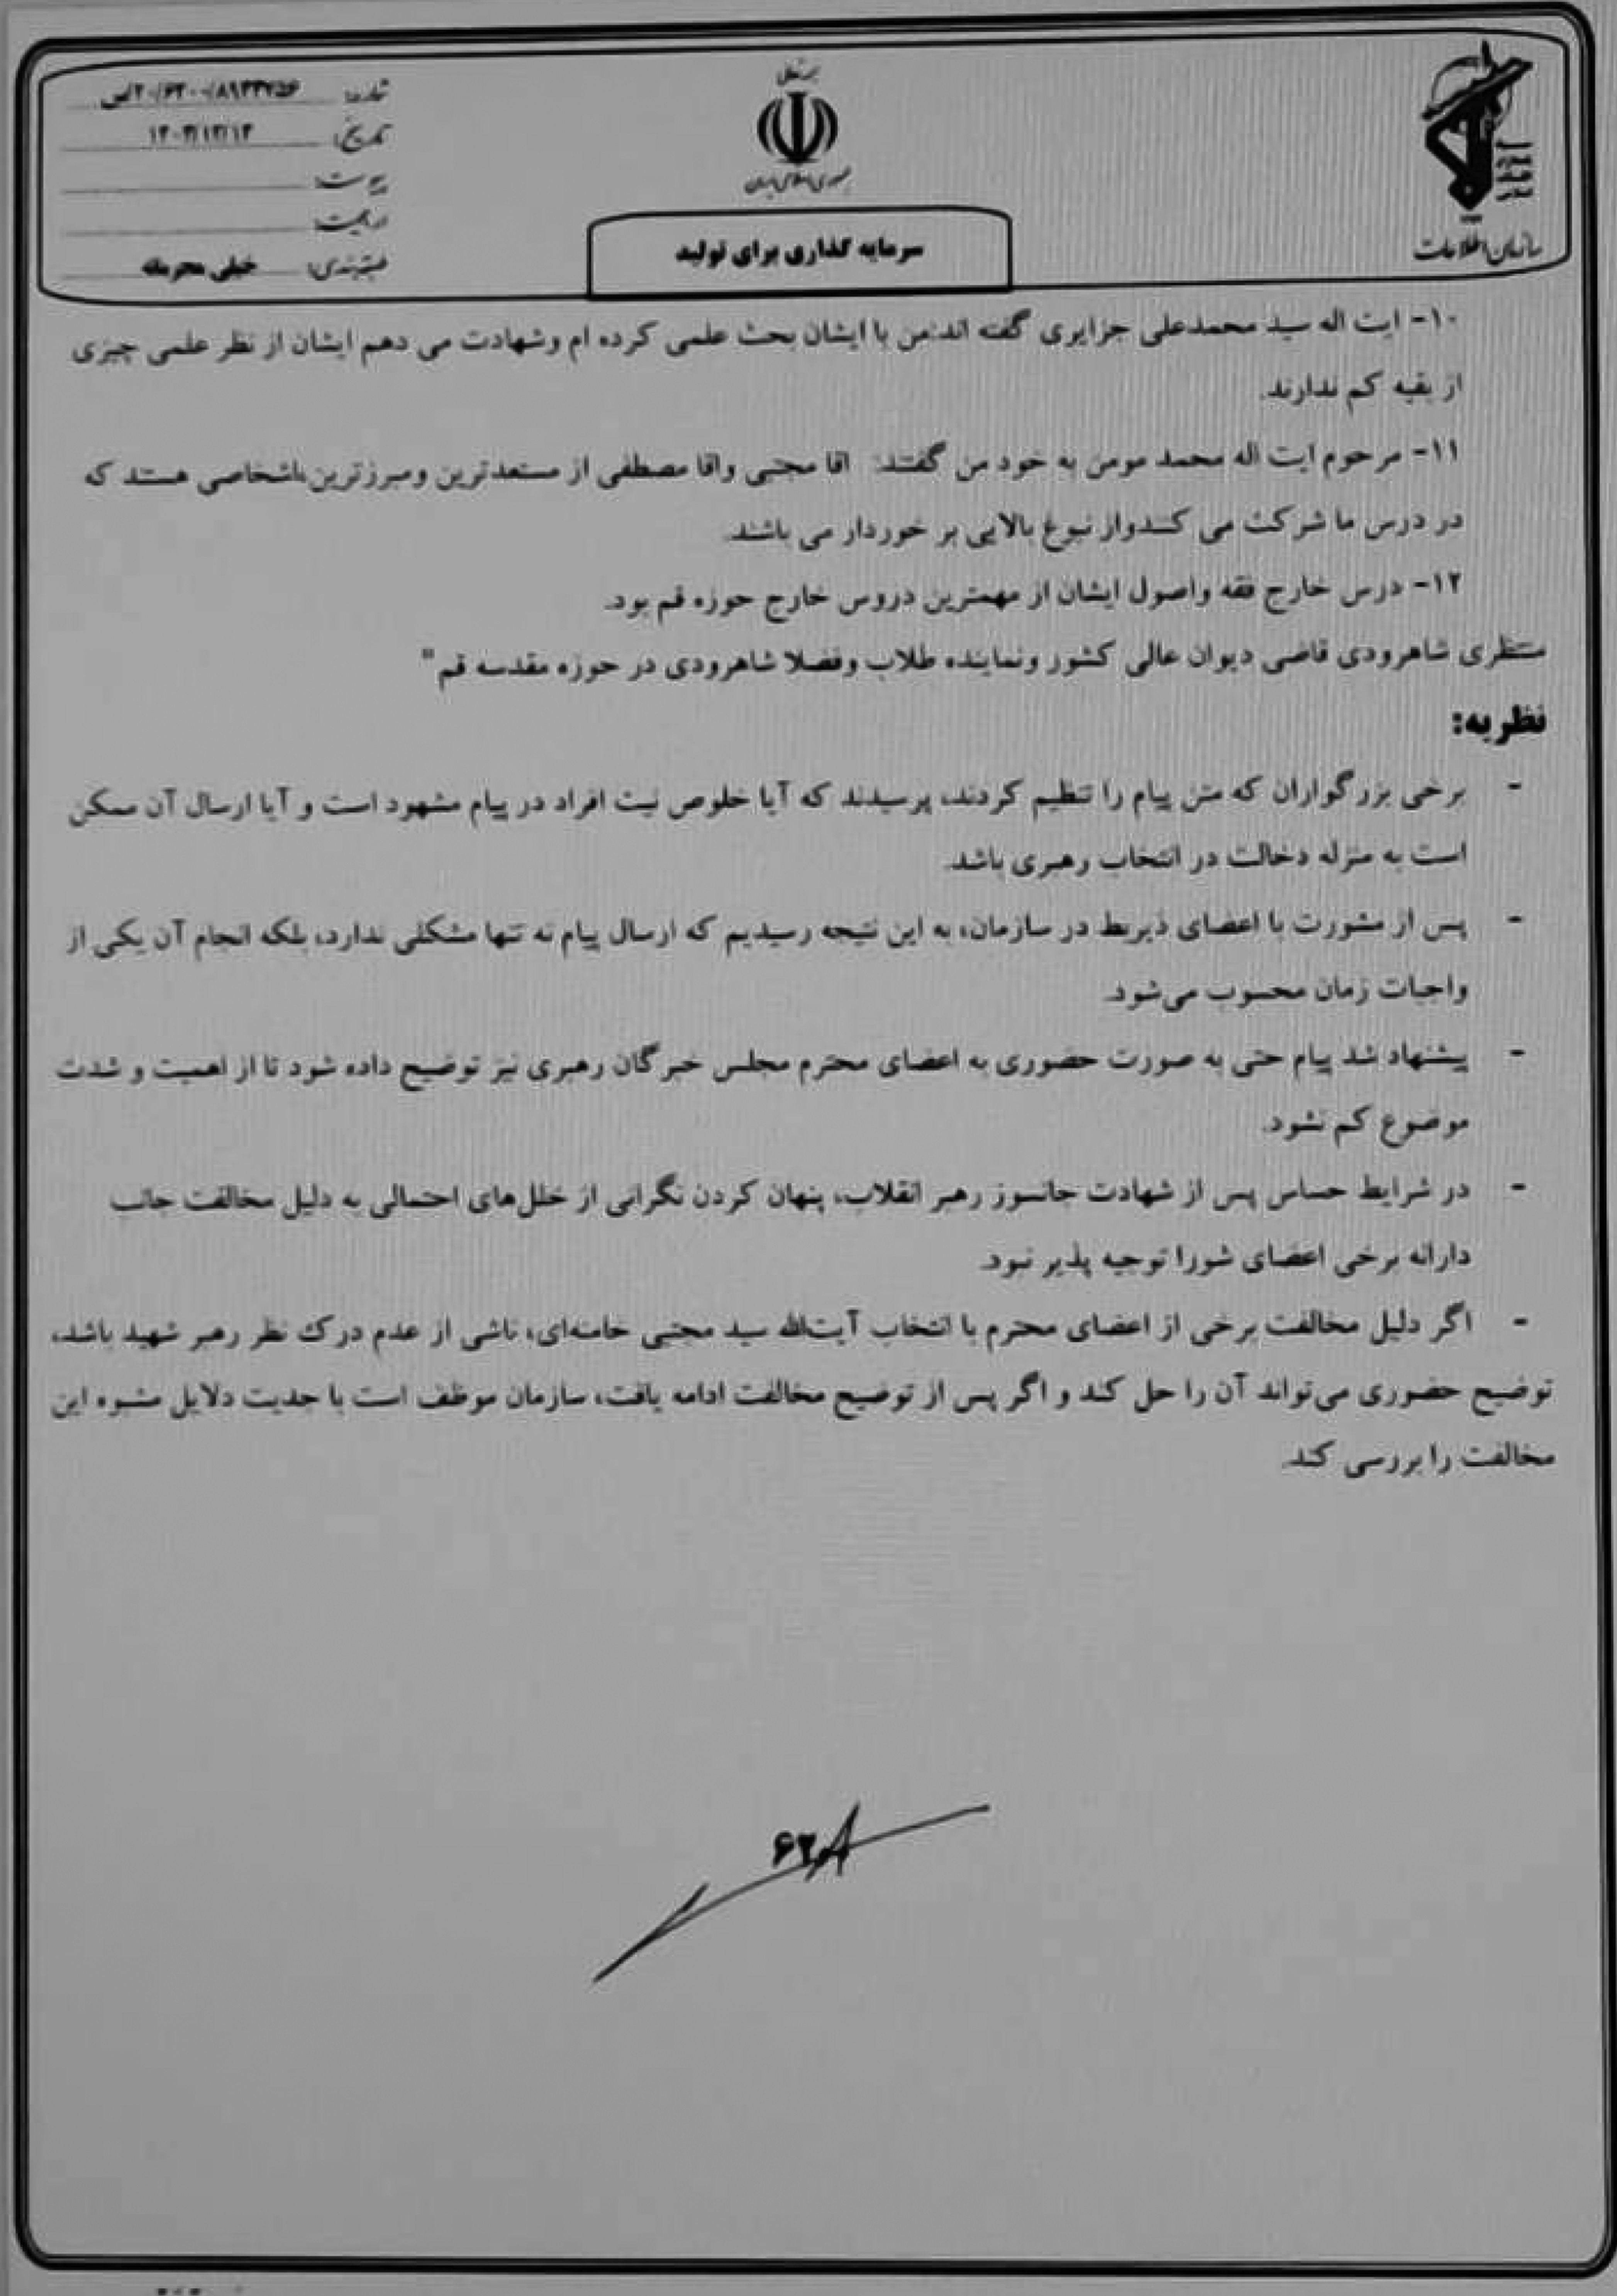 برتعالی
جمهوری اسلامی ایران
سازمان اطلاعات
شماره: ۲۰/۶۲۰۰/۸۹۳۳۷۵۶/س
تاریخ: ۱۴۰۴/۱۲/۱۴
پیوست:
طبقه‌بندی: خیلی محرمانه
سرمایه گذاری برای تولید
۱۰- ایت اله سید محمدعلی جزایری گفته اند:من با ایشان بحث علمی کرده ام وشهادت می دهم ایشان از نظر علمی چیزی
از بقیه کم ندارند.
۱۱- مرحوم ایت اله محمد مومن به خود من گفتند: اقا مجتبی واقا مصطفی از مستعدترین ومبرزترین اشخاصی هستند که
در درس ما شرکت می کنندواز نبوغ بالایی بر خوردار می باشند.
۱۲- درس خارج فقه واصول ایشان از مهمترین دروس خارج حوزه قم بود.
منتظری شاهرودی قاضی دیوان عالی کشور ونماینده طلاب وفضلا شاهرودی در حوزه مقدسه قم"
نظریه:
- برخی بزرگواران که متن پیام را تنظیم کردند، پرسیدند که آیا خلوص نیت افراد در پیام مشهود است و آیا ارسال آن ممکن
است به منزله دخالت در انتخاب رهبری باشد.
- پس از مشورت با اعضای ذیربط در سازمان، به این نتیجه رسیدیم که ارسال پیام نه تنها مشکلی ندارد، بلکه انجام آن یکی از
واجبات زمان محسوب می‌شود.
- پیشنهاد شد پیام حتی به صورت حضوری به اعضای محترم مجلس خبرگان رهبری نیز توضیح داده شود تا از اهمیت و شدت
موضوع کم نشود.
- در شرایط حساس پس از شهادت جانسوز رهبر انقلاب، پنهان کردن نگرانی از خلل‌های احتمالی به دلیل مخالفت جانب
دارانه برخی اعضای شورا توجیه پذیر نبود.
- اگر دلیل مخالفت برخی از اعضای محترم با انتخاب آیت‌الله سید مجتبی خامنه‌ای، ناشی از عدم درک نظر رهبر شهید باشد،
توضیح حضوری می‌تواند آن را حل کند و اگر پس از توضیح مخالفت ادامه یافت، سازمان موظف است با جدیت دلایل مشبوه این
مخالفت را بررسی کند.